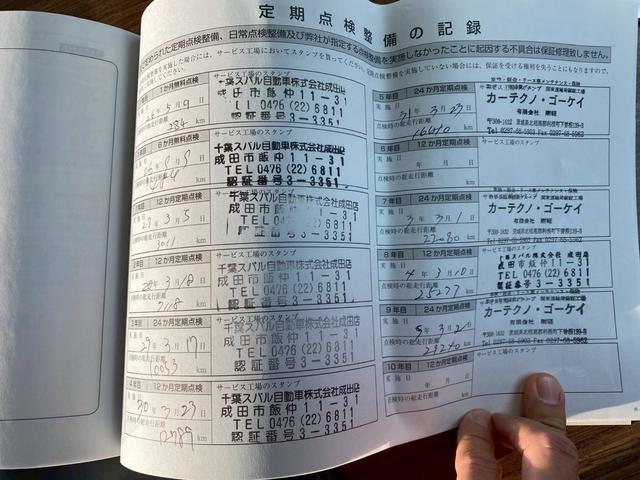 定期点検整備の記録
められた定期点検整備、日常点検整備及び弊社が指定する点検整備を実施しなかったことに起因する不具合は保証修理致しません。
を実施した場合には、サービス工場においてスタンプを貰ってください。定期点検を実施していない場合には、保証を受ける権利を失うことにもなりますので、
1か月無料点検
サービス工場のスタンプ
千葉スバル自動車株式会社成田店
成田市飯仲11-31
TEL 0476 (22) 6811
5月9日
284 km
6か月無料点検
サービス工場のスタンプ
千葉スバル自動車株式会社成田店
成田市飯仲11-31
TEL 0476 (22) 6811
認証番号3-3351
点検時の総走行距離
km
12か月定期点検
サービス工場のスタンプ
千葉スバル自動車株式会社成田店
成田市飯仲11-31
TEL 0476 (22) 6811
認証番号3-3351
実施日
27年3月5日
点検時の総走行距離
3011 km
2年目 12か月定期点検
サービス工場のスタンプ
千葉スバル自動車株式会社成田店
成田市飯仲11-31
TEL 0476 (22) 6811
認証番号3-3351
実施日
28年3月18日
点検時の総走行距離
7118 km
3年目 24か月定期点検
サービス工場のスタンプ
千葉スバル自動車株式会社成田店
成田市飯仲11-31
TEL 0476 (22) 6811
認証番号3-3351
実施日
29年3月17日
点検時の総走行距離
10053 km
4年目 12か月定期点検
サービス工場のスタンプ
千葉スバル自動車株式会社成田店
成田市飯仲11-31
TEL 0476 (22) 6811
認証番号3-3351
実施日
30年3月23日
点検時の総走行距離
km
5年目 24か月定期点検
実施日
31年3月23日
点検時の総走行距離
16640 km
カーテクノ・ゴーケイ
有限会社 剛軽
Tel 0297-68-5903 Fax 0297-68-5962
6年目 12か月定期点検
サービス工場のスタンプ
実施日
年 月 日
点検時の総走行距離
km
7年目 24か月定期点検
実施日
3年3月1日
点検時の総走行距離
22080 km
カーテクノ・ゴーケイ
有限会社 剛軽
8年目 12か月定期点検
千葉スバル株式会社 成田店
成田市飯仲11-31
TEL 0476 (22) 6811
認証番号3-3351
実施日
4年3月18日
点検時の総走行距離
25277 km
9年目 24か月定期点検
カーテクノ・ゴーケイ
有限会社 剛軽
実施日
5年3月2日
点検時の総走行距離
29240 km
10年目 12か月定期点検
サービス工場のスタンプ
実施日
年 月 日
点検時の総走行距離
km